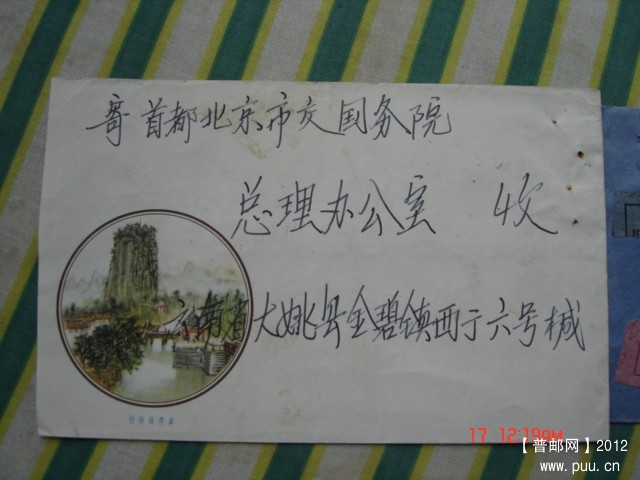 寄首都北京市交国务院
总理办公室 收
云南省大姚县金碧镇西于六号槭
17 12:19PM
【普邮网】2012
www.puu.cn